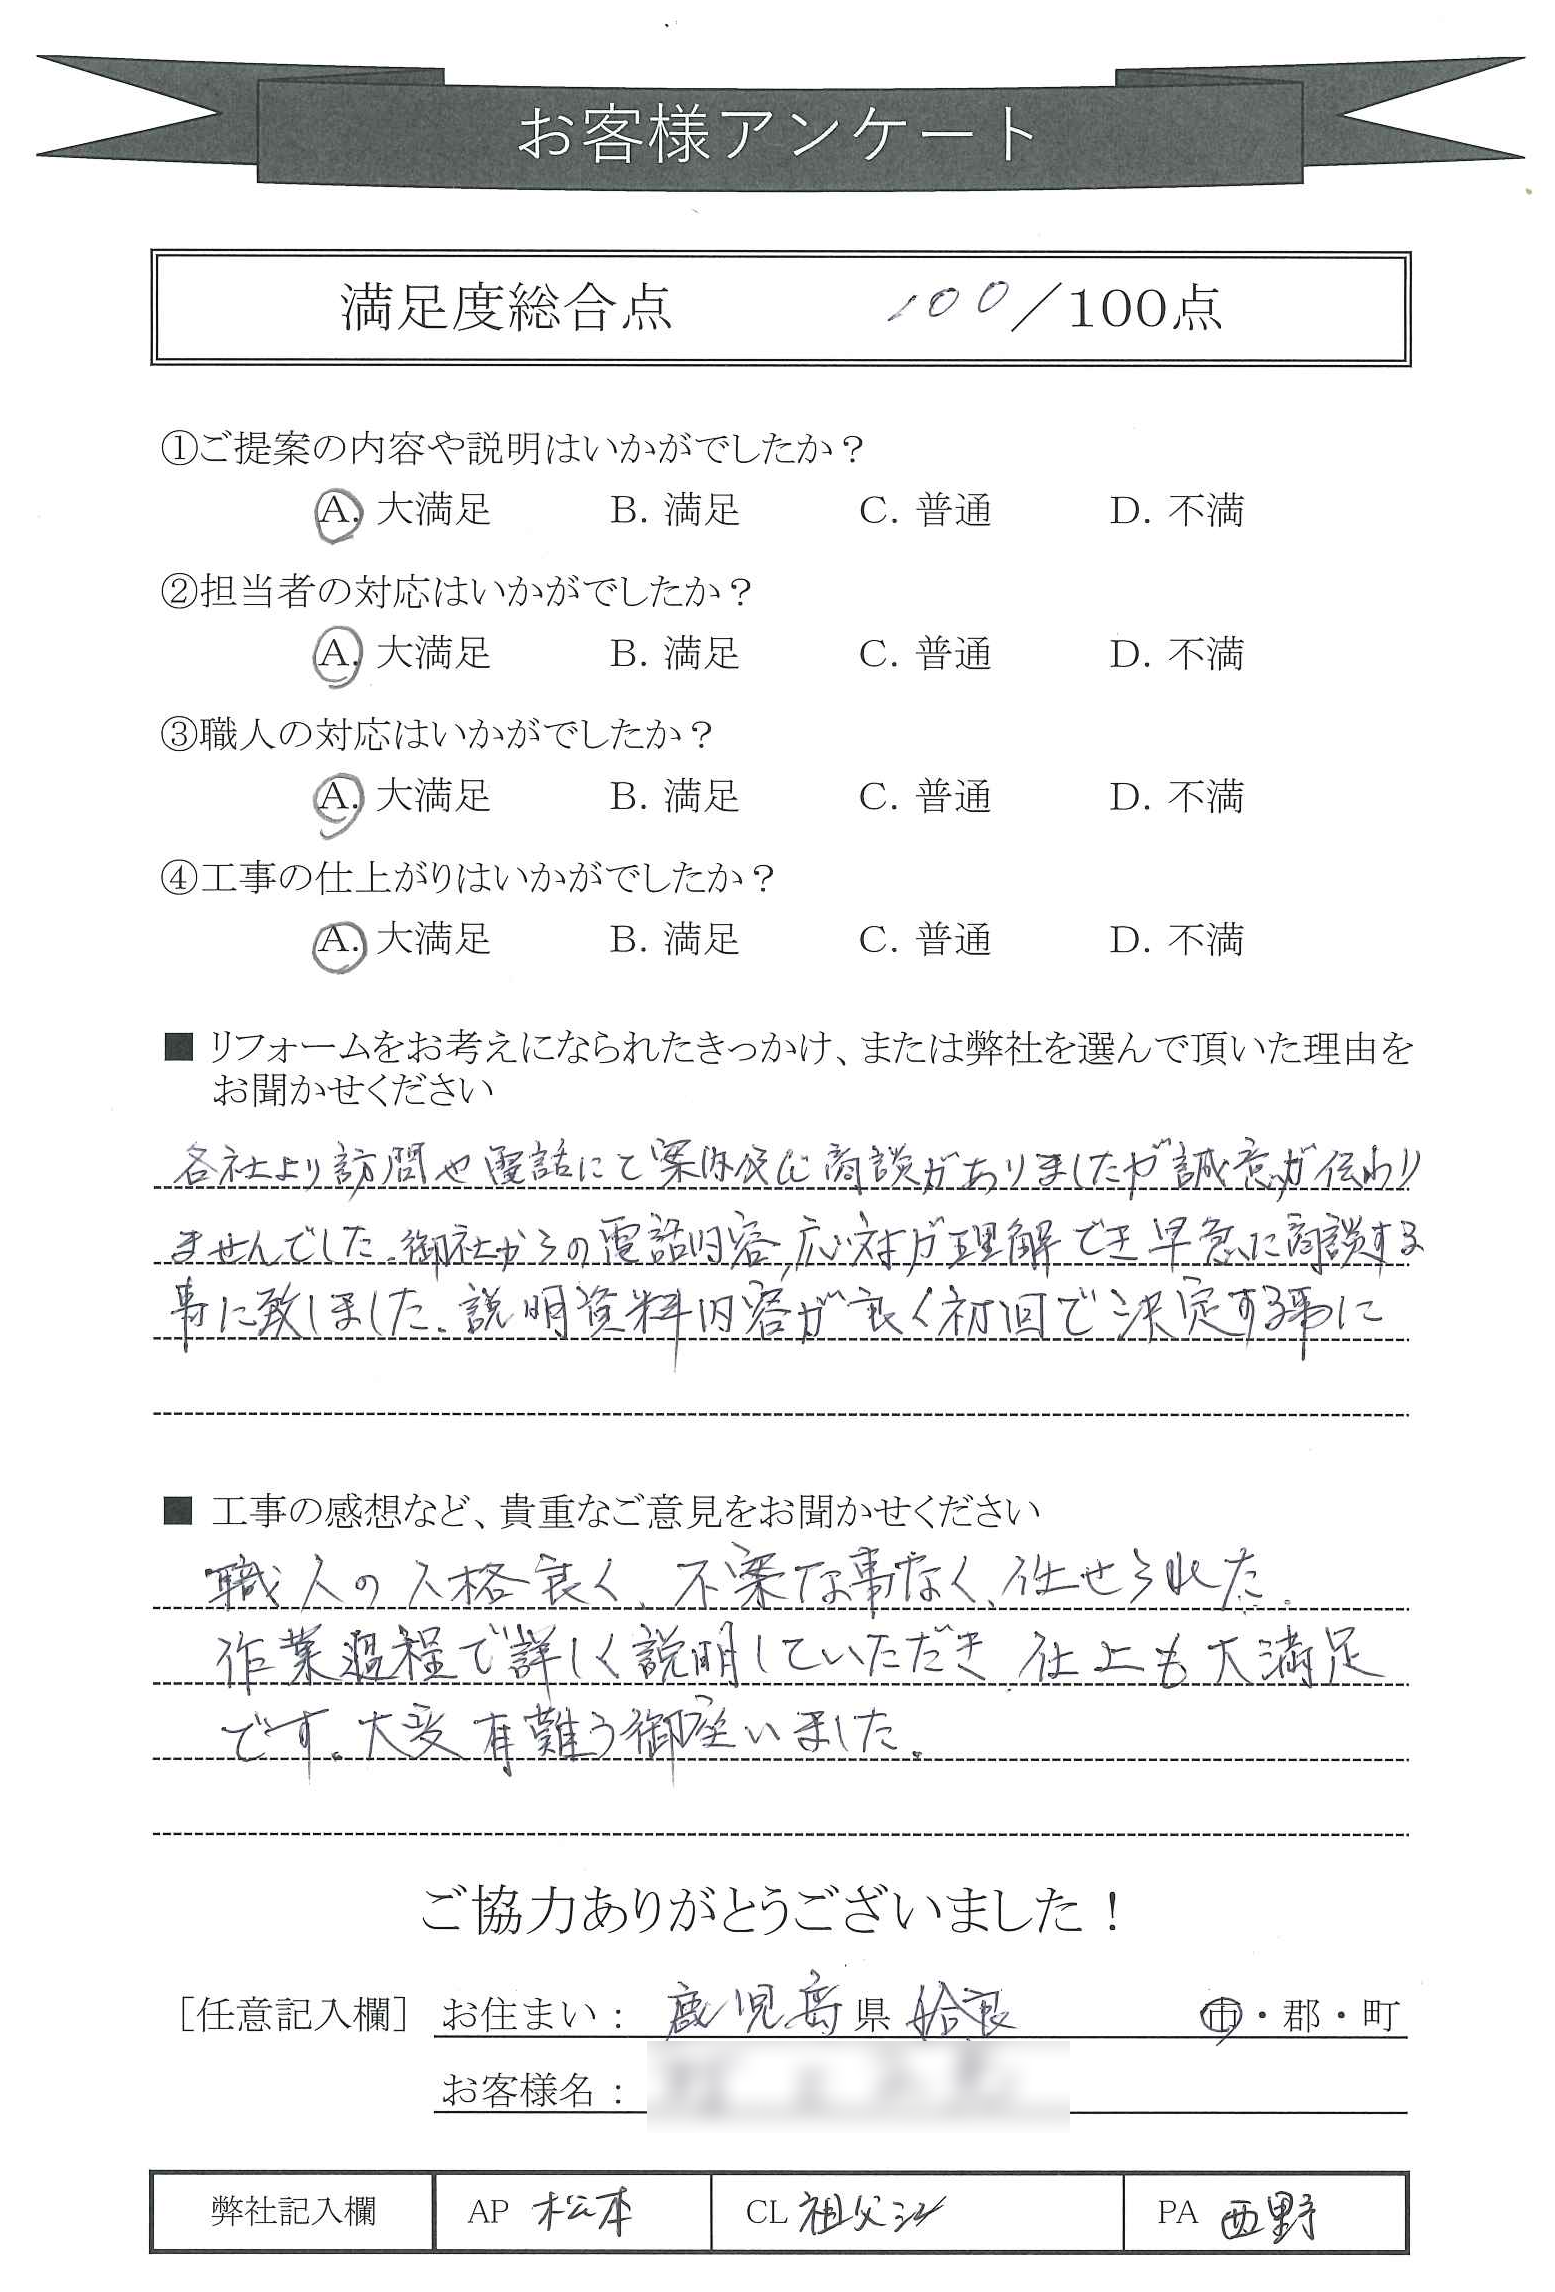 お客様アンケート
満足度総合点 100/100点
①ご提案の内容や説明はいかがでしたか？
A. 大満足 B. 満足 C. 普通 D. 不満
②担当者の対応はいかがでしたか？
A. 大満足 B. 満足 C. 普通 D. 不満
③職人の対応はいかがでしたか？
A. 大満足 B. 満足 C. 普通 D. 不満
④工事の仕上がりはいかがでしたか？
A. 大満足 B. 満足 C. 普通 D. 不満
■ リフォームをお考えになられたきっかけ、または弊社を選んで頂いた理由を
お聞かせください
各社より訪問や電話にて案内 商談がありましたが誠意が伝わり
ませんでした。御社からの電話内容,応対が理解でき早急に商談する
事に致しました。説明資料内容が良く初回で決定する事に
■ 工事の感想など、貴重なご意見をお聞かせください
職人の人格良く、不案な事なく、任せられた。
作業過程で詳しく説明していただき、仕上も大満足
です。大変有難う御座いました。
ご協力ありがとうございました！
［任意記入欄］ お住まい： 鹿児島県 姶良 市・郡・町
お客様名：
弊社記入欄 AP 松本 CL 祖父江 PA 西野